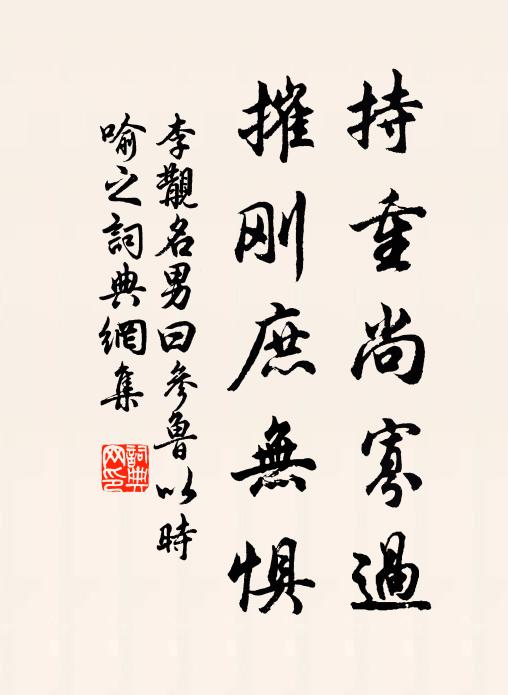 持重尚寡過
摧刚庶無惧
李觀名男曰參魯以時
喻之詞典網集
詞典网印